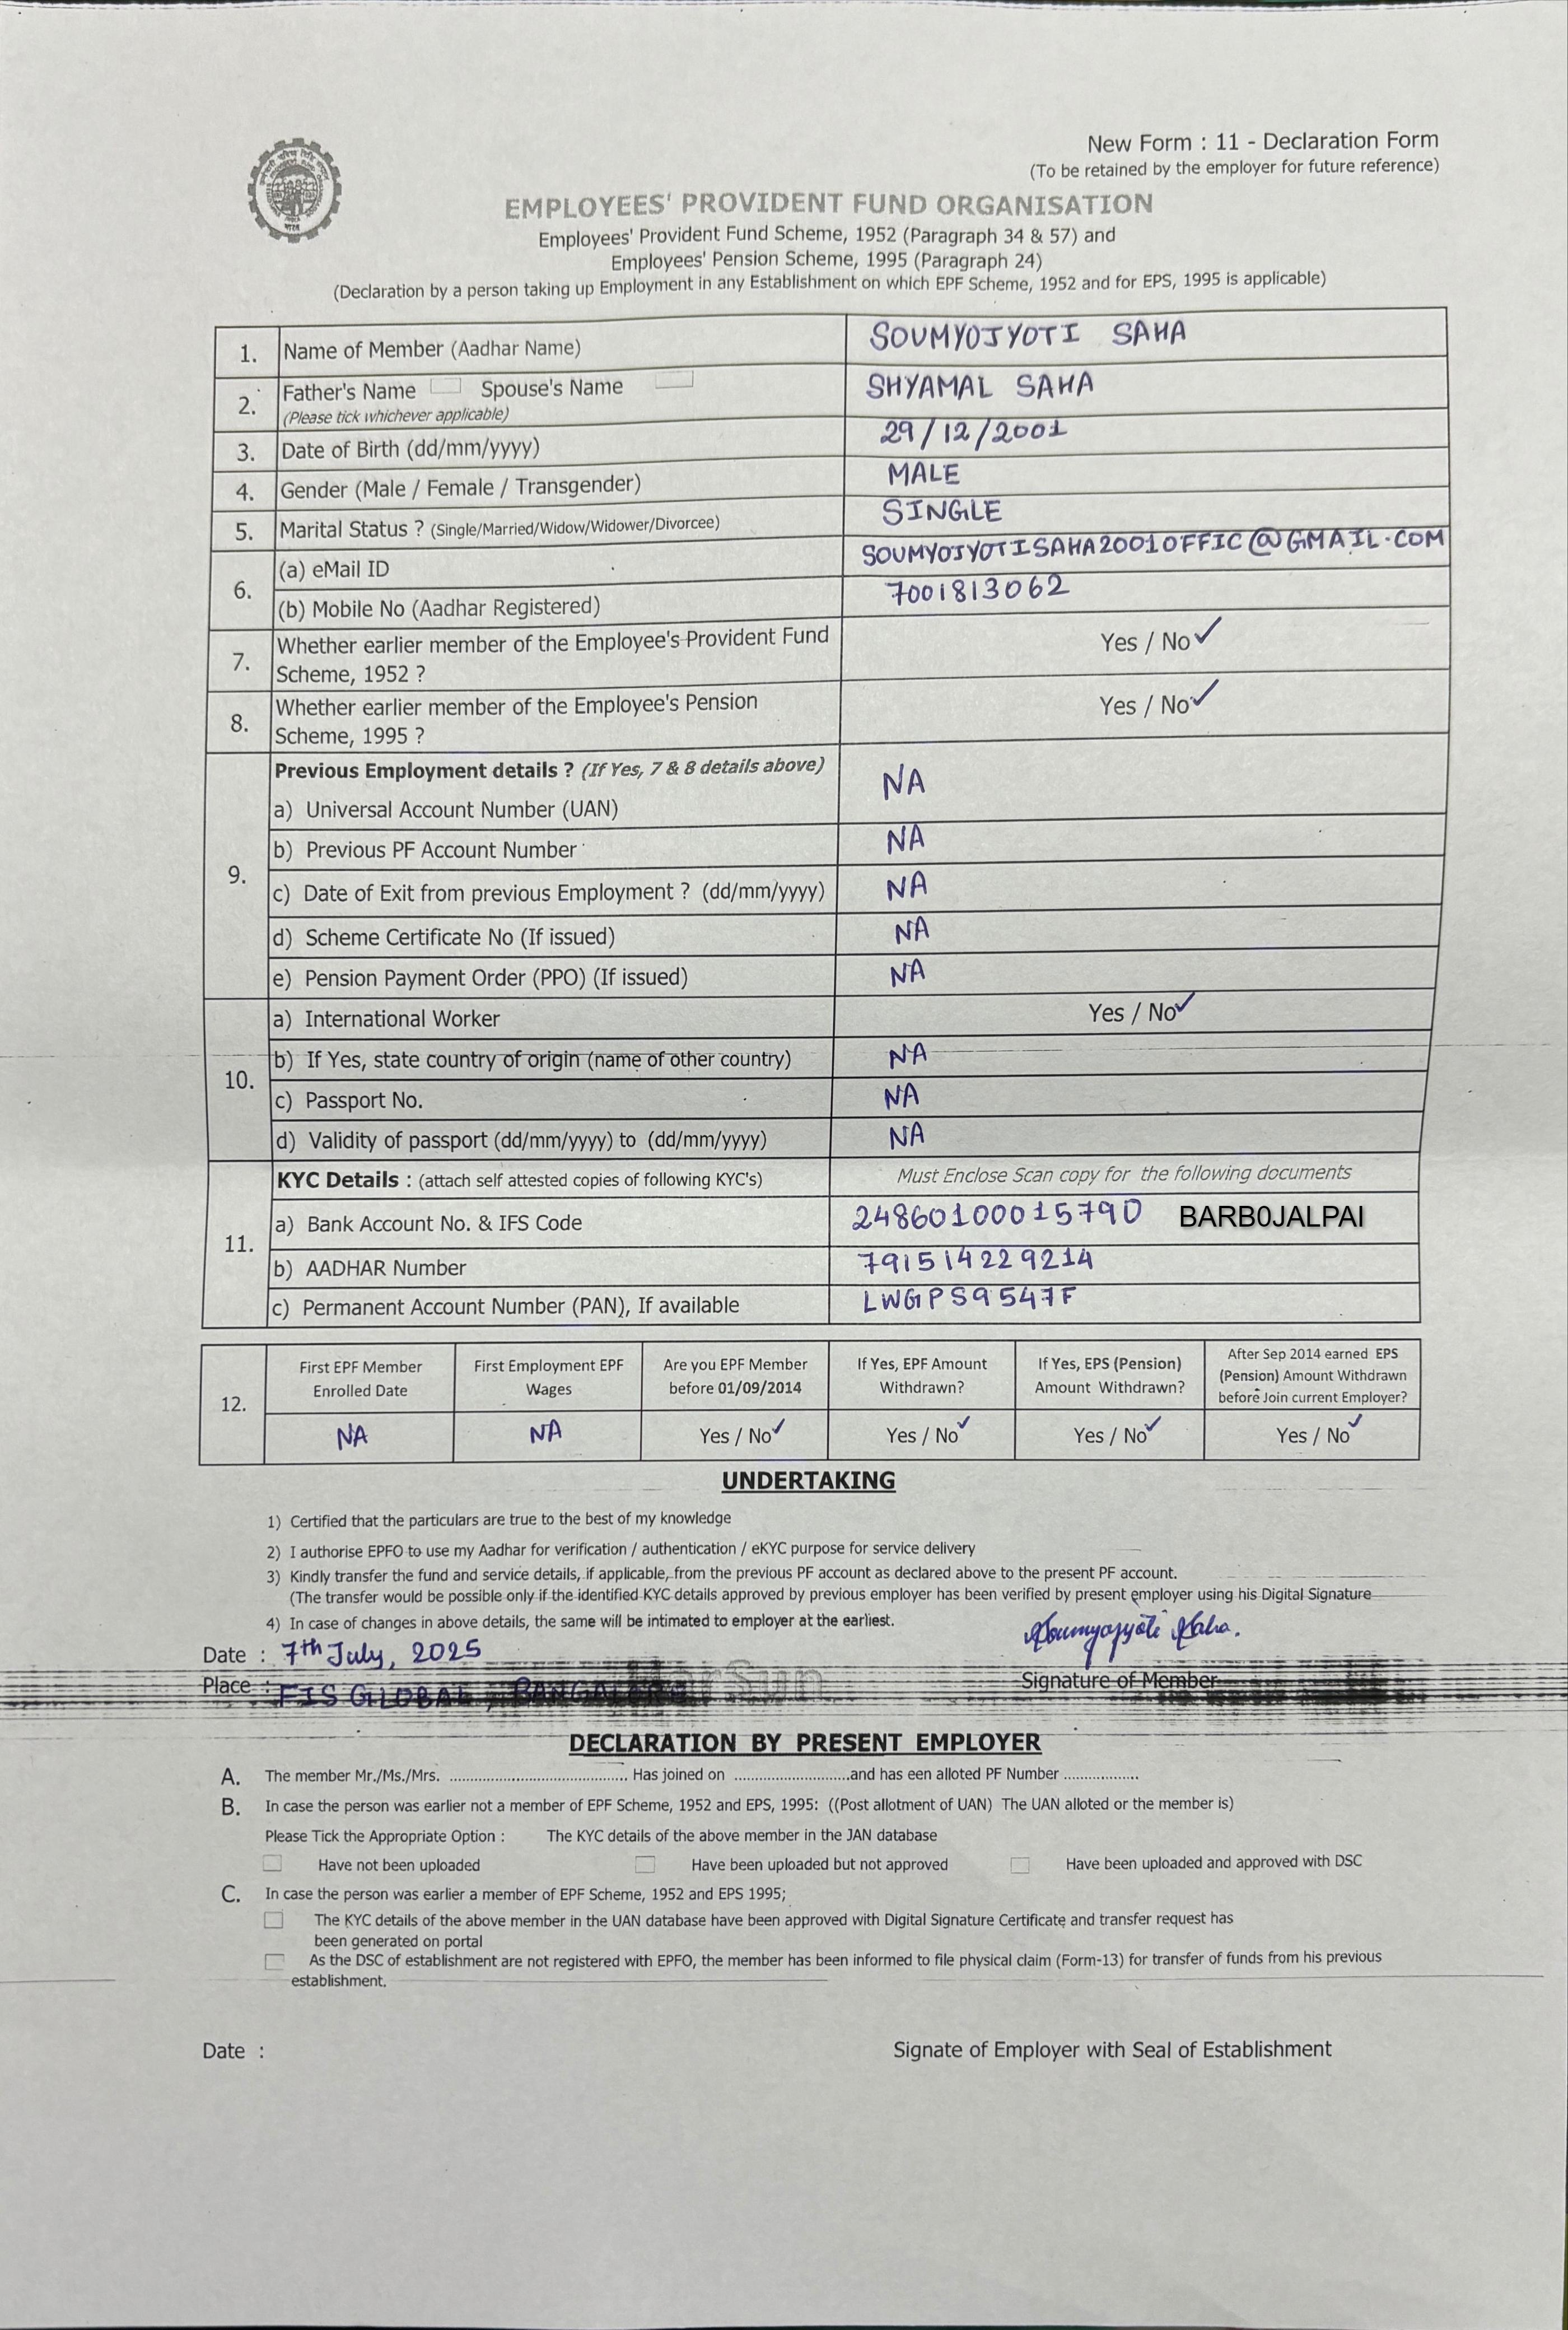 New Form : 11 - Declaration Form
(To be retained by the employer for future reference)
EMPLOYEES' PROVIDENT FUND ORGANISATION
Employees' Provident Fund Scheme, 1952 (Paragraph 34 & 57) and
Employees' Pension Scheme, 1995 (Paragraph 24)
(Declaration by a person taking up Employment in any Establishment on which EPF Scheme, 1952 and for EPS, 1995 is applicable)
1. Name of Member (Aadhar Name) SOUMYOJYOTI SAHA
2. Father's Name Spouse's Name SHYAMAL SAHA
(Please tick whichever applicable)
3. Date of Birth (dd/mm/yyyy) 29/12/2001
4. Gender (Male / Female / Transgender) MALE
5. Marital Status ? (Single/Married/Widow/Widower/Divorcee) SINGLE
6. (a) eMail ID SOUMYOJYOTISAHA2001OFFIC@GMAIL.COM
(b) Mobile No (Aadhar Registered) 7001813062
7. Whether earlier member of the Employee's Provident Fund Yes / No ✓
Scheme, 1952 ?
8. Whether earlier member of the Employee's Pension Yes / No ✓
Scheme, 1995 ?
9. Previous Employment details ? (If Yes, 7 & 8 details above)
a) Universal Account Number (UAN) NA
b) Previous PF Account Number NA
c) Date of Exit from previous Employment ? (dd/mm/yyyy) NA
d) Scheme Certificate No (If issued) NA
e) Pension Payment Order (PPO) (If issued) NA
10. a) International Worker Yes / No ✓
b) If Yes, state country of origin (name of other country) NA
c) Passport No. NA
d) Validity of passport (dd/mm/yyyy) to (dd/mm/yyyy) NA
11. KYC Details : (attach self attested copies of following KYC's) Must Enclose Scan copy for the following documents
a) Bank Account No. & IFS Code 24860100015790 BARB0JALPAI
b) AADHAR Number 791514229214
c) Permanent Account Number (PAN), If available LWGPS9547F
12. First EPF Member Enrolled Date NA
First Employment EPF Wages NA
Are you EPF Member before 01/09/2014 Yes / No ✓
If Yes, EPF Amount Withdrawn? Yes / No ✓
If Yes, EPS (Pension) Amount Withdrawn? Yes / No ✓
After Sep 2014 earned EPS (Pension) Amount Withdrawn before Join current Employer? Yes / No ✓
UNDERTAKING
1) Certified that the particulars are true to the best of my knowledge
2) I authorise EPFO to use my Aadhar for verification / authentication / eKYC purpose for service delivery
3) Kindly transfer the fund and service details, if applicable, from the previous PF account as declared above to the present PF account.
(The transfer would be possible only if the identified KYC details approved by previous employer has been verified by present employer using his Digital Signature
4) In case of changes in above details, the same will be intimated to employer at the earliest.
Soumyojyoti Saha.
Date : 7th July, 2025
Place : FIS GLOBAL, BANGALORE Signature of Member
DECLARATION BY PRESENT EMPLOYER
A. The member Mr./Ms./Mrs. .................................... Has joined on ........................and has een alloted PF Number ................
B. In case the person was earlier not a member of EPF Scheme, 1952 and EPS, 1995: ((Post allotment of UAN) The UAN alloted or the member is)
Please Tick the Appropriate Option : The KYC details of the above member in the JAN database
Have not been uploaded Have been uploaded but not approved Have been uploaded and approved with DSC
C. In case the person was earlier a member of EPF Scheme, 1952 and EPS 1995;
The KYC details of the above member in the UAN database have been approved with Digital Signature Certificate and transfer request has
been generated on portal
As the DSC of establishment are not registered with EPFO, the member has been informed to file physical claim (Form-13) for transfer of funds from his previous
establishment.
Date : Signate of Employer with Seal of Establishment